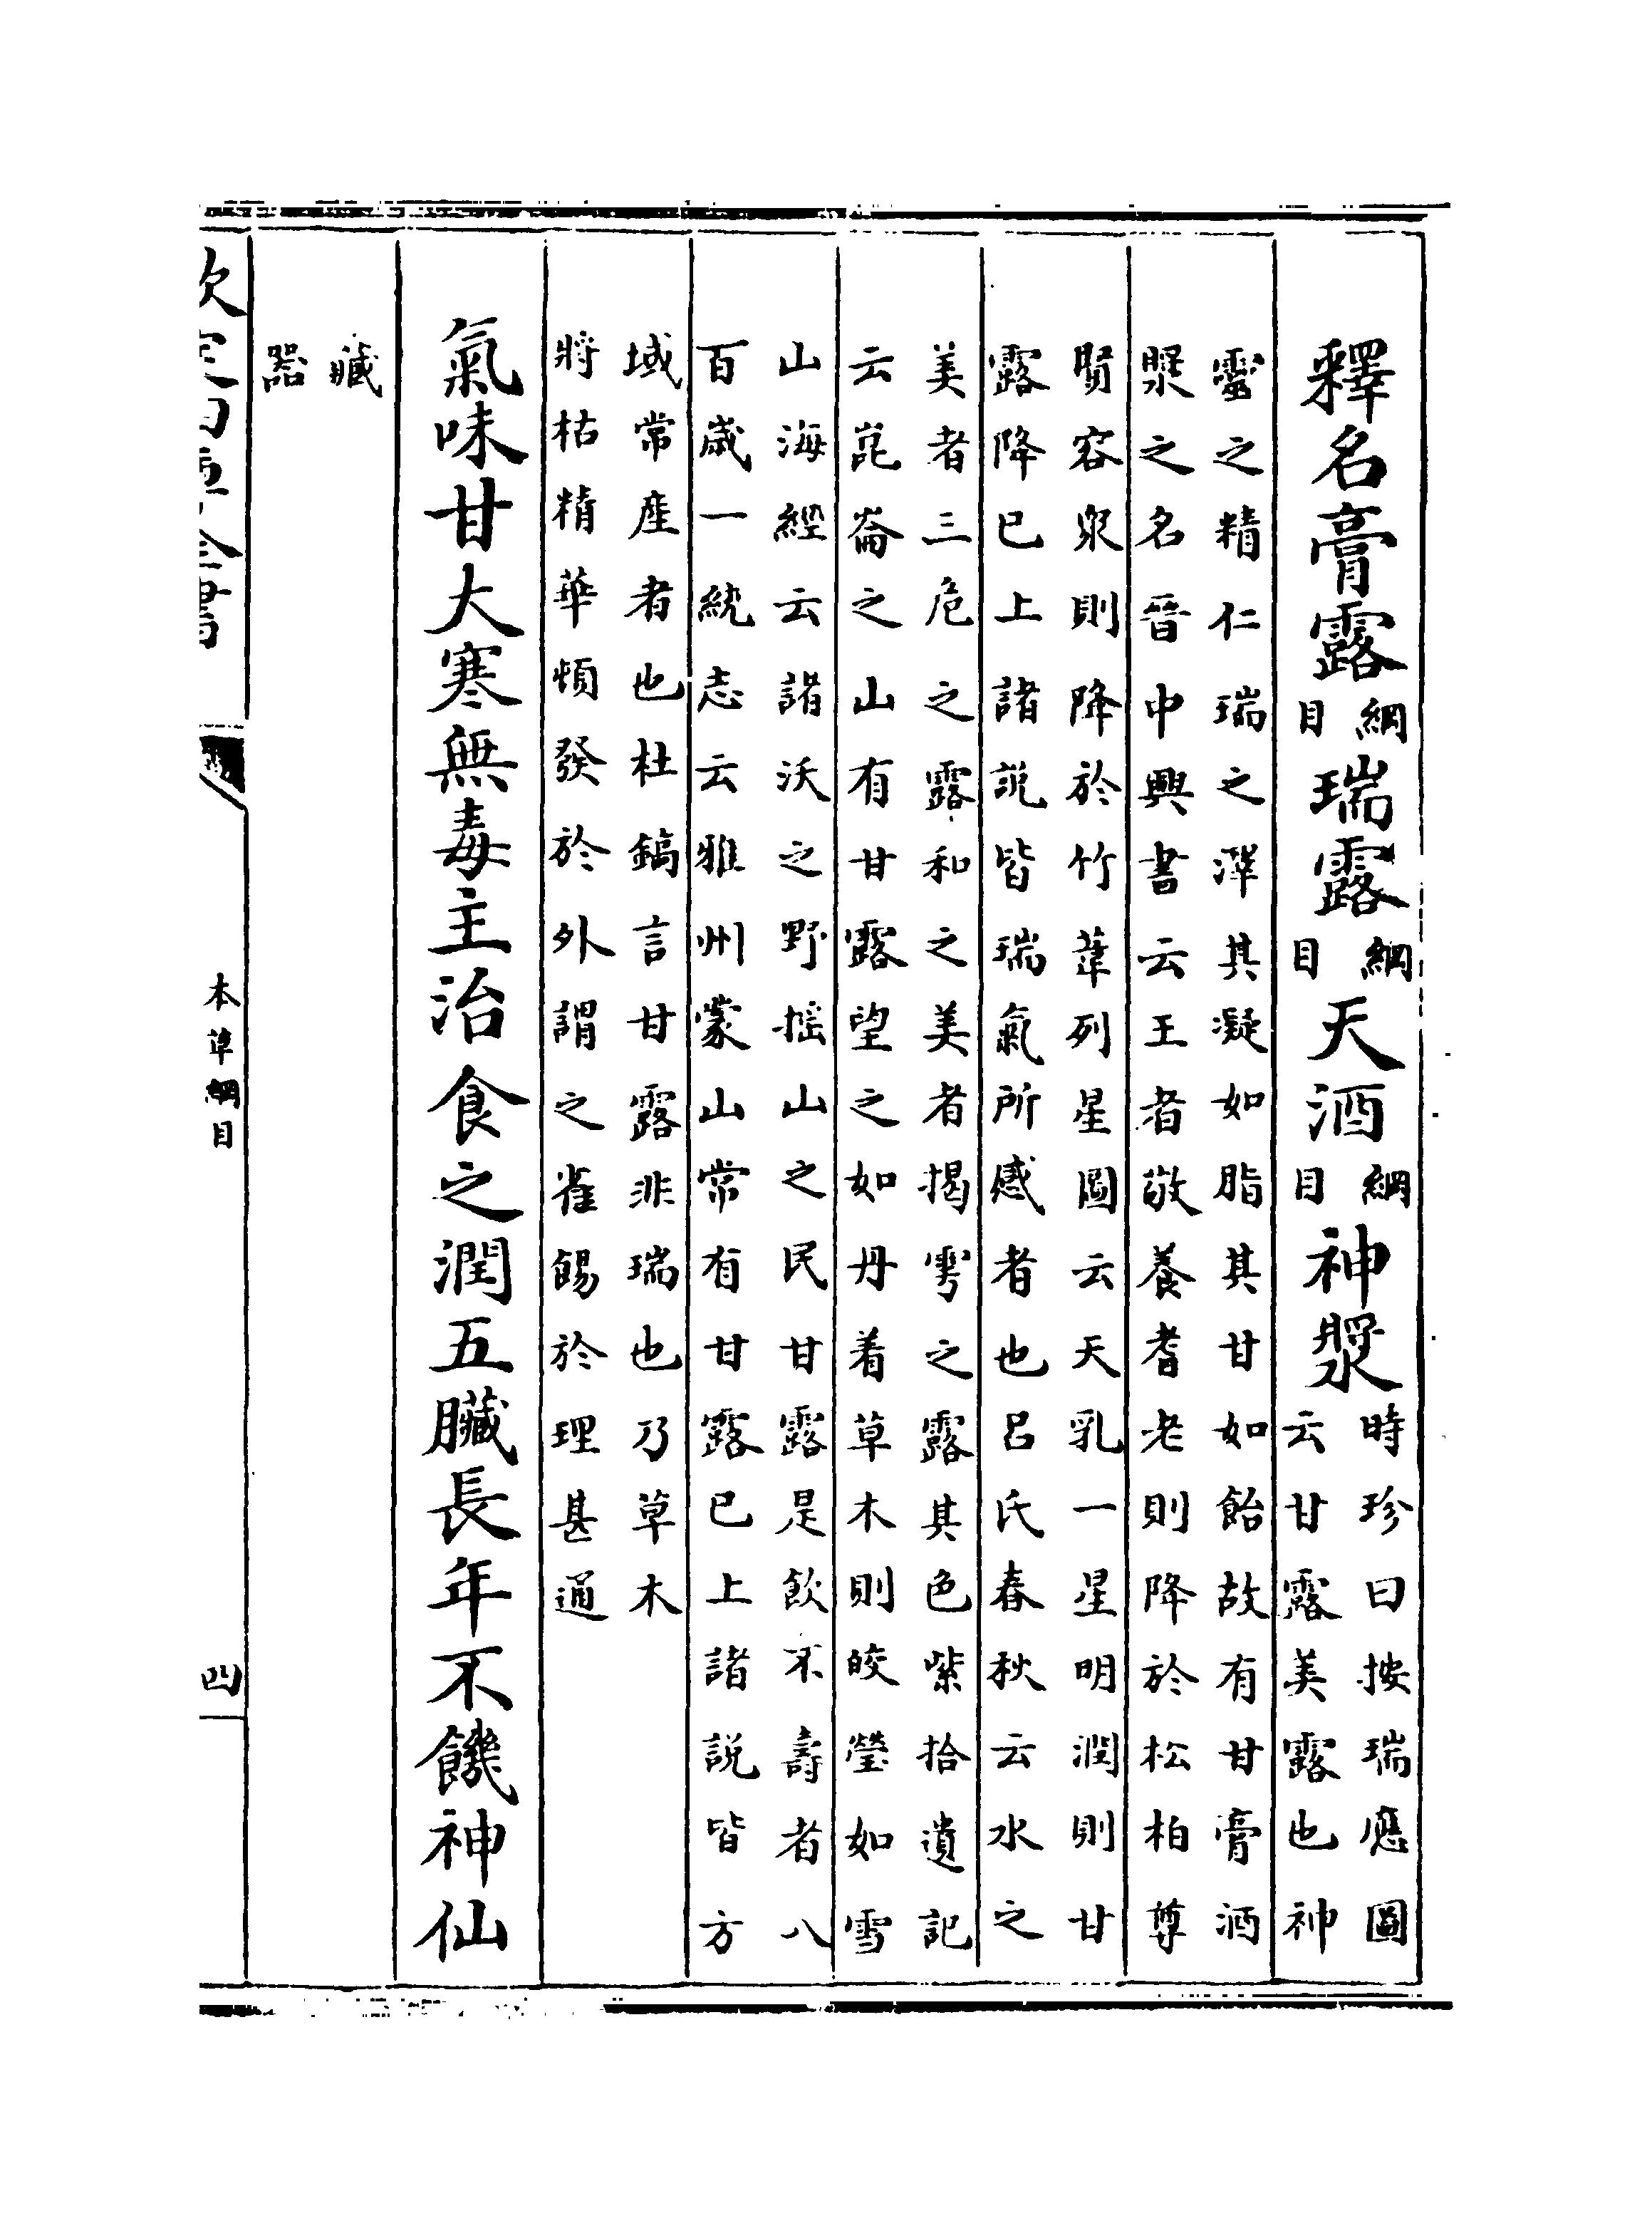 釋名膏露綱目瑞露綱目天酒綱目神漿時珍曰按瑞應圖
云甘露美露也神
靈之精仁瑞之澤其凝如脂其甘如飴故有甘膏酒
漿之名晉中興書云王者敬養耆老則降於松柏尊
賢容衆則降於竹葦列星圖云天乳一星明潤則甘
露降已上諸説皆瑞氣所感者也呂氏春秋云水之
美者三危之露和之美者揭雩之露其色紫拾遺記
云崑崙之山有甘露望之如丹着草木則皎瑩如雪
山海經云諸沃之野摇山之民甘露是飲不壽者八
百歲一統志云雅州蒙山常有甘露已上諸説皆方
域常產者也杜鎬言甘露非瑞也乃草木
將枯精華頓發於外謂之雀餳於理甚通
氣味甘大寒無毒主治食之潤五臟長年不饑神仙
藏
器
欽定四庫全書
本草綱目
四